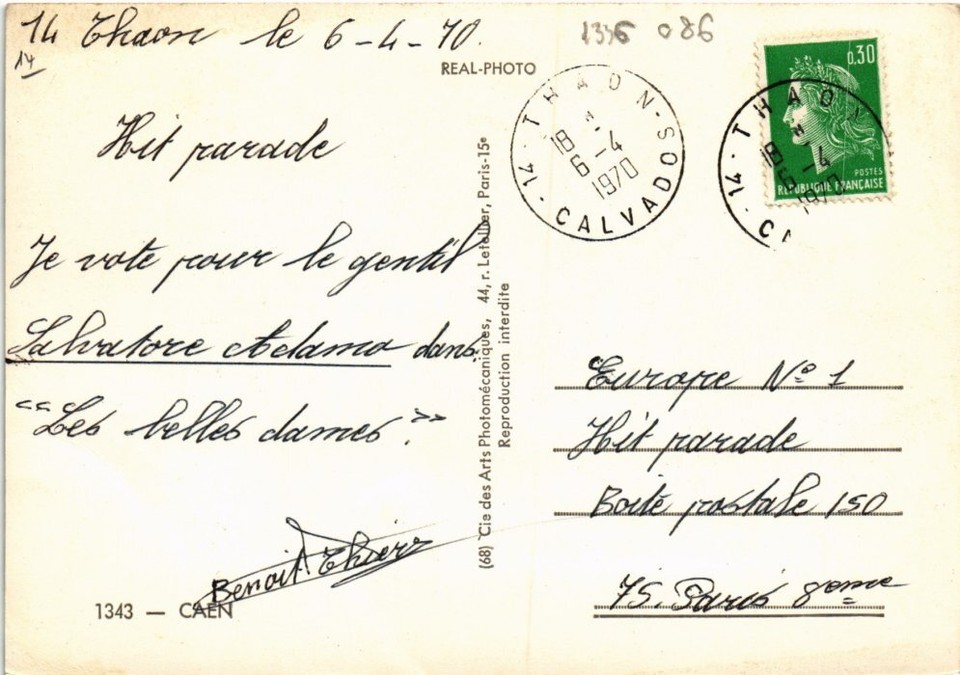 14 Thaon le 6-4-70.
14
1336 086
REAL-PHOTO
Hit parade
Je vote pour le gentil
Salvatore Adamo dans
"Les belles dames"
Benoit Thierz
1343 — CAEN
(68) Cie des Arts Photomécaniques, 44, r. Letellier, Paris-15e
Reproduction interdite
14 - THAON - CALVADOS
18
6-4
1970
14 - THAON
18
6-4
1970
0,30
POSTES
RÉPUBLIQUE FRANÇAISE
Europe N° 1
Hit parade
Boite postale 150
75. Paris 8eme